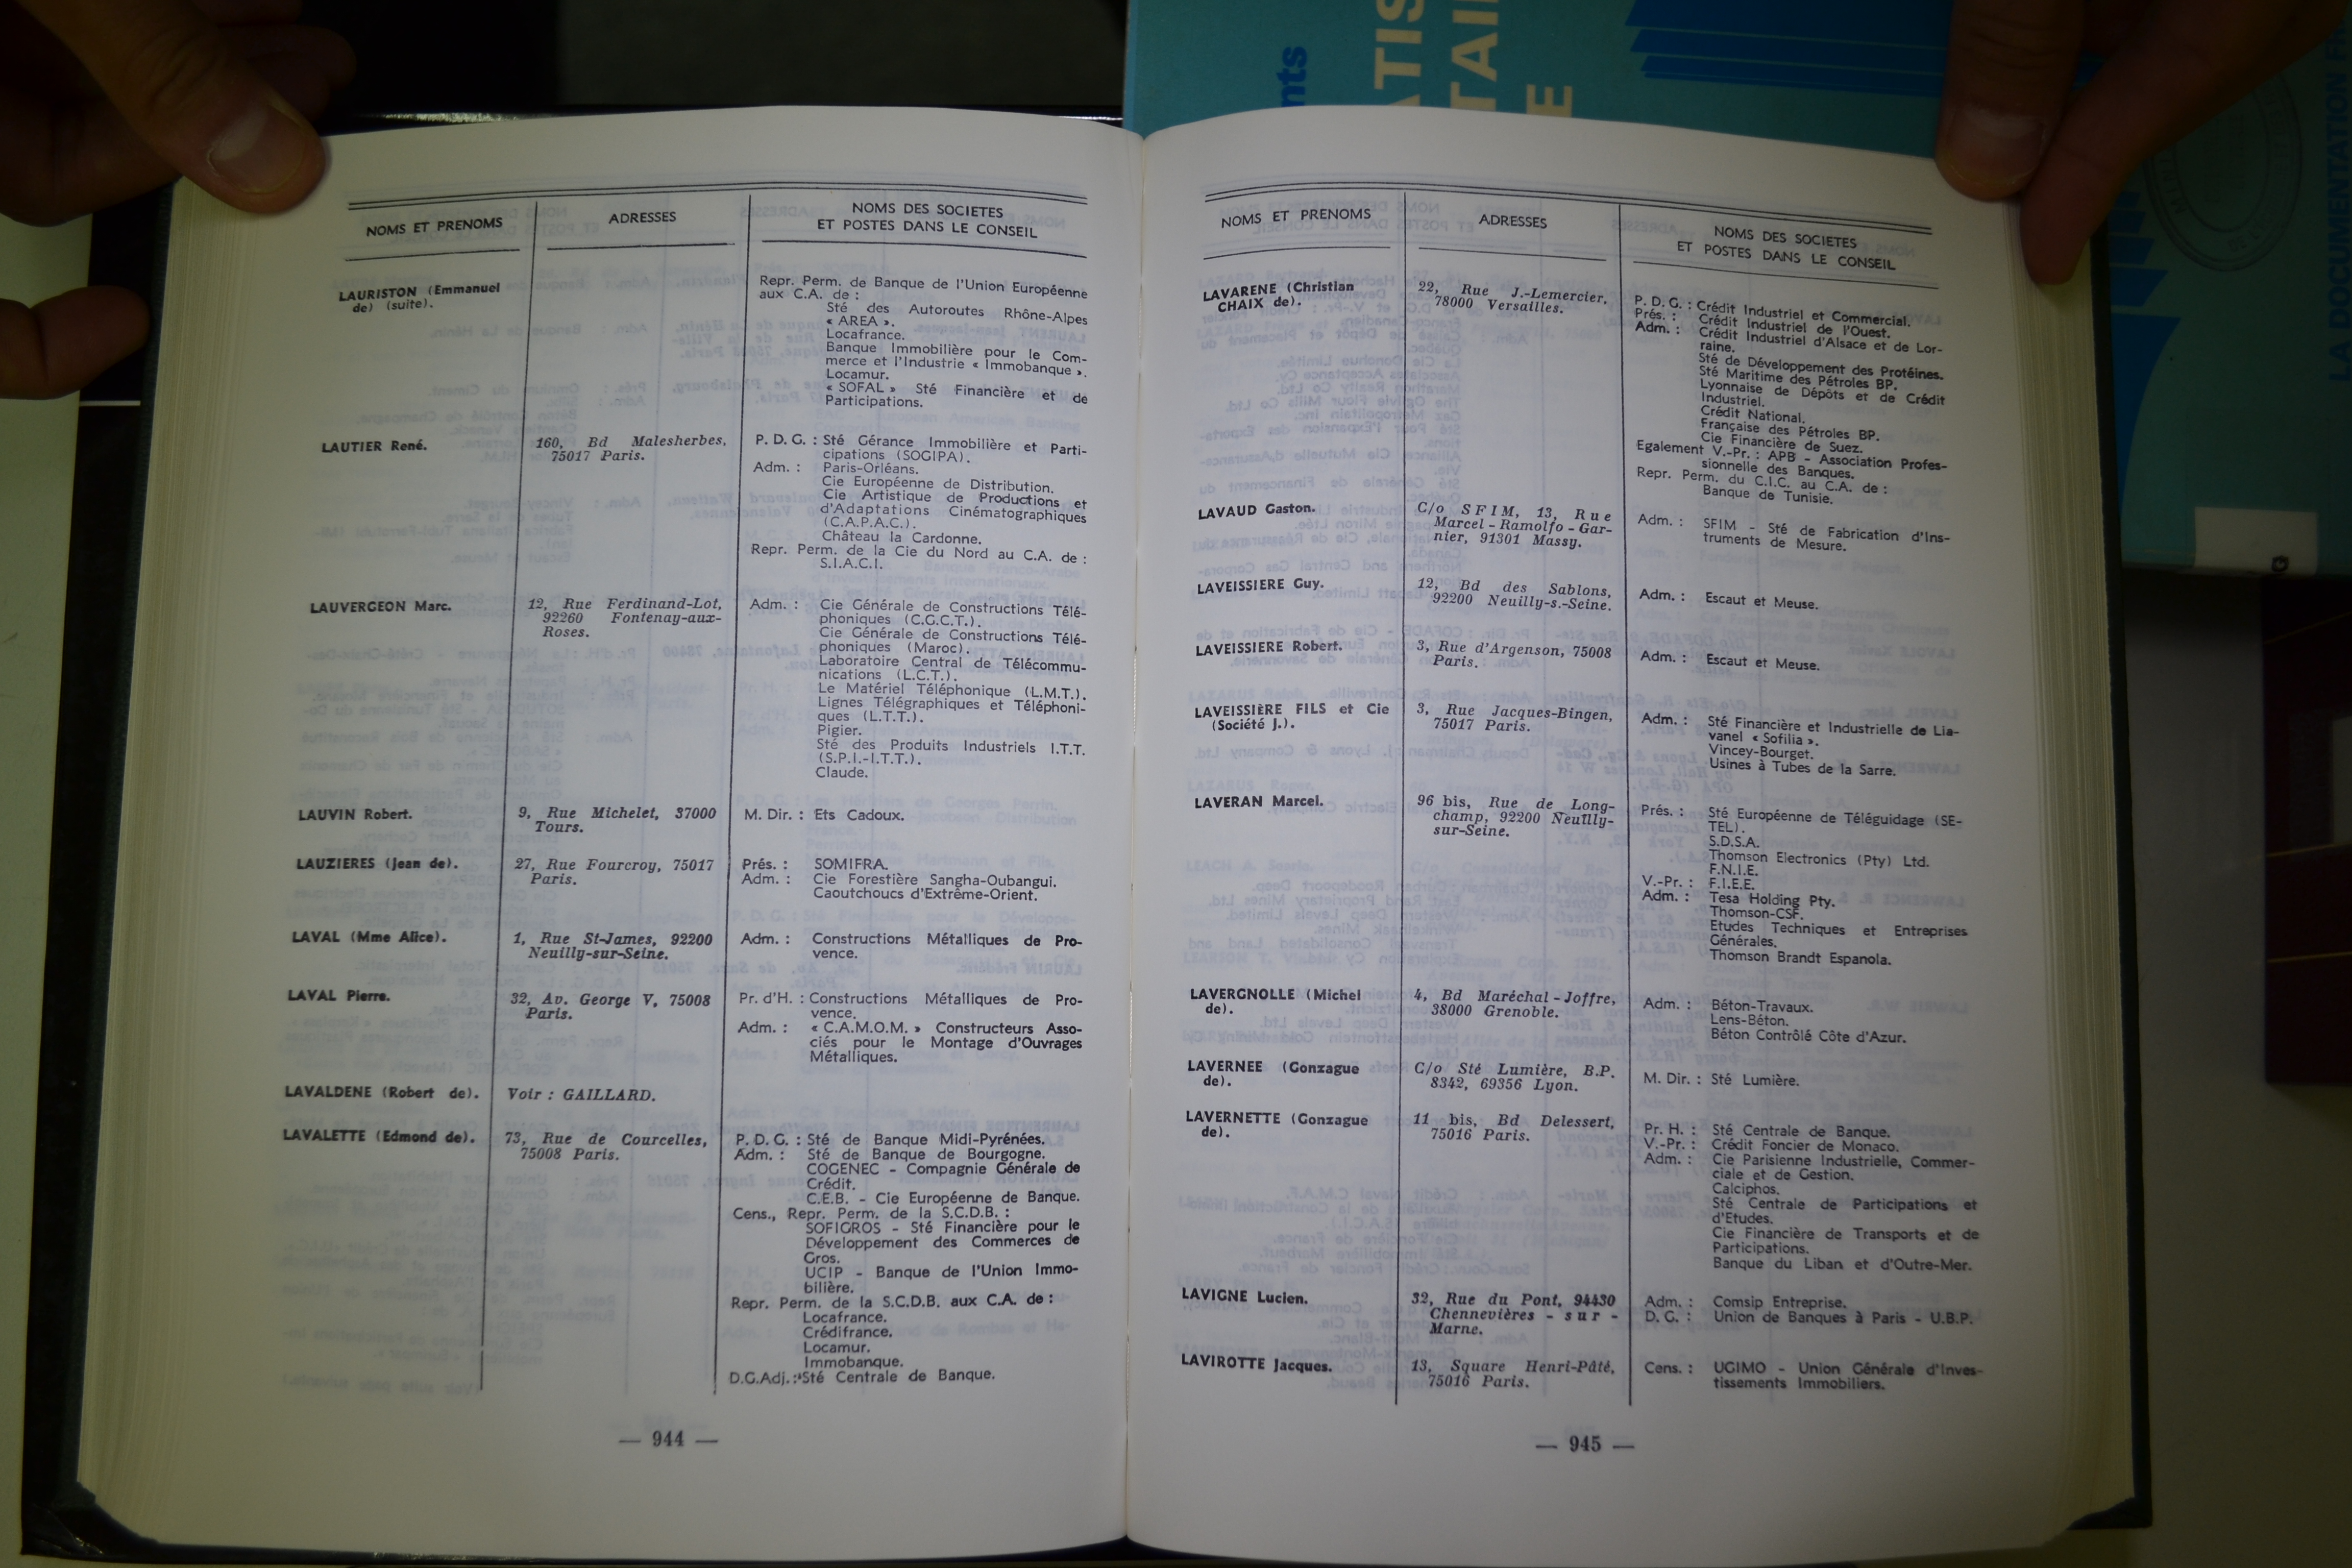 NOMS ET PRENOMS
ADRESSES
NOMS DES SOCIETES
ET POSTES DANS LE CONSEIL
LAURISTON (Emmanuel
de) (suite).
Repr. Perm. de Banque de l'Union Européenne
aux C.A. de :
Sté des Autoroutes Rhône-Alpes
« AREA ».
Locafrance.
Banque Immobilière pour le Com-
merce et l'Industrie « Immobanque ».
Locamur.
« SOFAL » Sté Financière et de
Participations.
LAUTIER René.
160, Bd Malesherbes,
75017 Paris.
P. D. G. : Sté Gérance Immobilière et Parti-
cipations (SOGIPA).
Adm. : Paris-Orléans.
Cie Européenne de Distribution.
Cie Artistique de Productions et
d'Adaptations Cinématographiques
(C.A.P.A.C.).
Château la Cardonne.
Repr. Perm. de la Cie du Nord au C.A. de :
S.I.A.C.I.
LAUVERGEON Marc.
12, Rue Ferdinand-Lot,
92260 Fontenay-aux-
Roses.
Adm. : Cie Générale de Constructions Télé-
phoniques (C.G.C.T.).
Cie Générale de Constructions Télé-
phoniques (Maroc).
Laboratoire Central de Télécommu-
nications (L.C.T.).
Le Matériel Téléphonique (L.M.T.).
Lignes Télégraphiques et Téléphoni-
ques (L.T.T.).
Pigier.
Sté des Produits Industriels I.T.T.
(S.P.I.-I.T.T.).
Claude.
LAUVIN Robert.
9, Rue Michelet, 37000
Tours.
M. Dir. : Ets Cadoux.
LAUZIERES (Jean de).
27, Rue Fourcroy, 75017
Paris.
Prés. : SOMIFRA.
Adm. : Cie Forestière Sangha-Oubangui.
Caoutchoucs d'Extrême-Orient.
LAVAL (Mme Alice).
1, Rue St-James, 92200
Neuilly-sur-Seine.
Adm. : Constructions Métalliques de Pro-
vence.
LAVAL Pierre.
32, Av. George V, 75008
Paris.
Pr. d'H. : Constructions Métalliques de Pro-
vence.
Adm. : « C.A.M.O.M. » Constructeurs Asso-
ciés pour le Montage d'Ouvrages
Métalliques.
LAVALDENE (Robert de).
Voir : GAILLARD.
LAVALETTE (Edmond de).
73, Rue de Courcelles,
75008 Paris.
P. D. G. : Sté de Banque Midi-Pyrénées.
Adm. : Sté de Banque de Bourgogne.
COGENEC - Compagnie Générale de
Crédit.
C.E.B. - Cie Européenne de Banque.
Cens., Repr. Perm. de la S.C.D.B. :
SOFIGROS - Sté Financière pour le
Développement des Commerces de
Gros.
UCIP - Banque de l'Union Immo-
bilière.
Repr. Perm. de la S.C.D.B. aux C.A. de :
Locafrance.
Crédifrance.
Locamur.
Immobanque.
D.G.Adj. : Sté Centrale de Banque.
— 944 —
NOMS ET PRENOMS
ADRESSES
NOMS DES SOCIETES
ET POSTES DANS LE CONSEIL
LAVARENE (Christian
CHAIX de).
22, Rue J.-Lemercier,
78000 Versailles.
P. D. G. : Crédit Industriel et Commercial.
Prés. : Crédit Industriel de l'Ouest.
Adm. : Crédit Industriel d'Alsace et de Lor-
raine.
Sté de Développement des Protéines.
Sté Maritime des Pétroles BP.
Lyonnaise de Dépôts et de Crédit
Industriel.
Crédit National.
Française des Pétroles BP.
Cie Financière de Suez.
Egalement V.-Pr. : APB - Association Profes-
sionnelle des Banques.
Repr. Perm. du C.I.C. au C.A. de :
Banque de Tunisie.
LAVAUD Gaston.
C/o SFIM, 13, Rue
Marcel - Ramolfo - Gar-
nier, 91301 Massy.
Adm. : SFIM - Sté de Fabrication d'Ins-
truments de Mesure.
LAVEISSIERE Guy.
12, Bd des Sablons,
92200 Neuilly-s.-Seine.
Adm. : Escaut et Meuse.
LAVEISSIERE Robert.
3, Rue d'Argenson, 75008
Paris.
Adm. : Escaut et Meuse.
LAVEISSIÈRE FILS et Cie
(Société J.).
3, Rue Jacques-Bingen,
75017 Paris.
Adm. : Sté Financière et Industrielle de Lia-
vanel « Sofilia ».
Vincey-Bourget.
Usines à Tubes de la Sarre.
LAVERAN Marcel.
96 bis, Rue de Long-
champ, 92200 Neuilly-
sur-Seine.
Prés. : Sté Européenne de Téléguidage (SE-
TEL).
S.D.S.A.
Thomson Electronics (Pty) Ltd.
F.N.I.E.
V.-Pr. : F.I.E.E.
Adm. : Tesa Holding Pty.
Thomson-CSF.
Etudes Techniques et Entreprises
Générales.
Thomson Brandt Espanola.
LAVERGNOLLE (Michel
de).
4, Bd Maréchal - Joffre,
38000 Grenoble.
Adm. : Béton-Travaux.
Lens-Béton.
Béton Contrôlé Côte d'Azur.
LAVERNEE (Gonzague
de).
C/o Sté Lumière, B.P.
8342, 69356 Lyon.
M. Dir. : Sté Lumière.
LAVERNETTE (Gonzague
de).
11 bis, Bd Delessert,
75016 Paris.
Pr. H. : Sté Centrale de Banque.
V.-Pr. : Crédit Foncier de Monaco.
Adm. : Cie Parisienne Industrielle, Commer-
ciale et de Gestion.
Calciphos.
Sté Centrale de Participations et
d'Etudes.
Cie Financière de Transports et de
Participations.
Banque du Liban et d'Outre-Mer.
LAVIGNE Lucien.
32, Rue du Pont, 94430
Chennevières - sur -
Marne.
Adm. : Comsip Entreprise.
D. G. : Union de Banques à Paris - U.B.P.
LAVIROTTE Jacques.
13, Square Henri-Pâté,
75016 Paris.
Cens. : UGIMO - Union Générale d'Inves-
tissements Immobiliers.
— 945 —
LA DOCUMENTATION